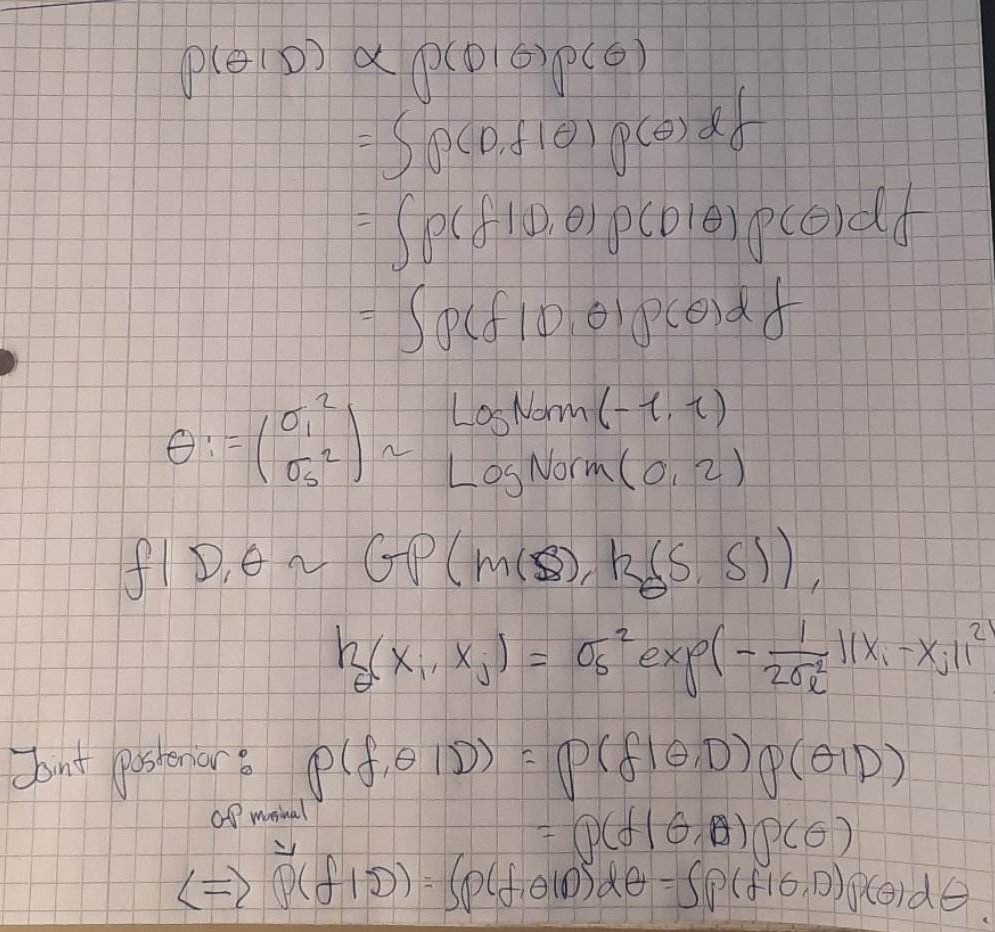 p(θ|D) ∝ p(D|θ)p(θ)
= ∫p(D,f|θ)p(θ)df
= ∫p(f|D,θ)p(D|θ)p(θ)df
= ∫p(f|D,θ)p(θ)df
θ := (σ_l² σ_s²) ~ LogNorm(-1, 1)
LogNorm(0, 2)
f|D,θ ~ GP(m(S), k_θ(S, S)),
k_θ(x_i, x_j) = σ_s² exp(-1/2σ_l² ||x_i - x_j||²)
Joint posterior: p(f,θ|D) = p(f|θ,D)p(θ|D)
= p(f|θ,D)p(θ)
GP marginal
<=> p(f|D) = ∫p(f,θ|D)dθ = ∫p(f|θ,D)p(θ)dθ.